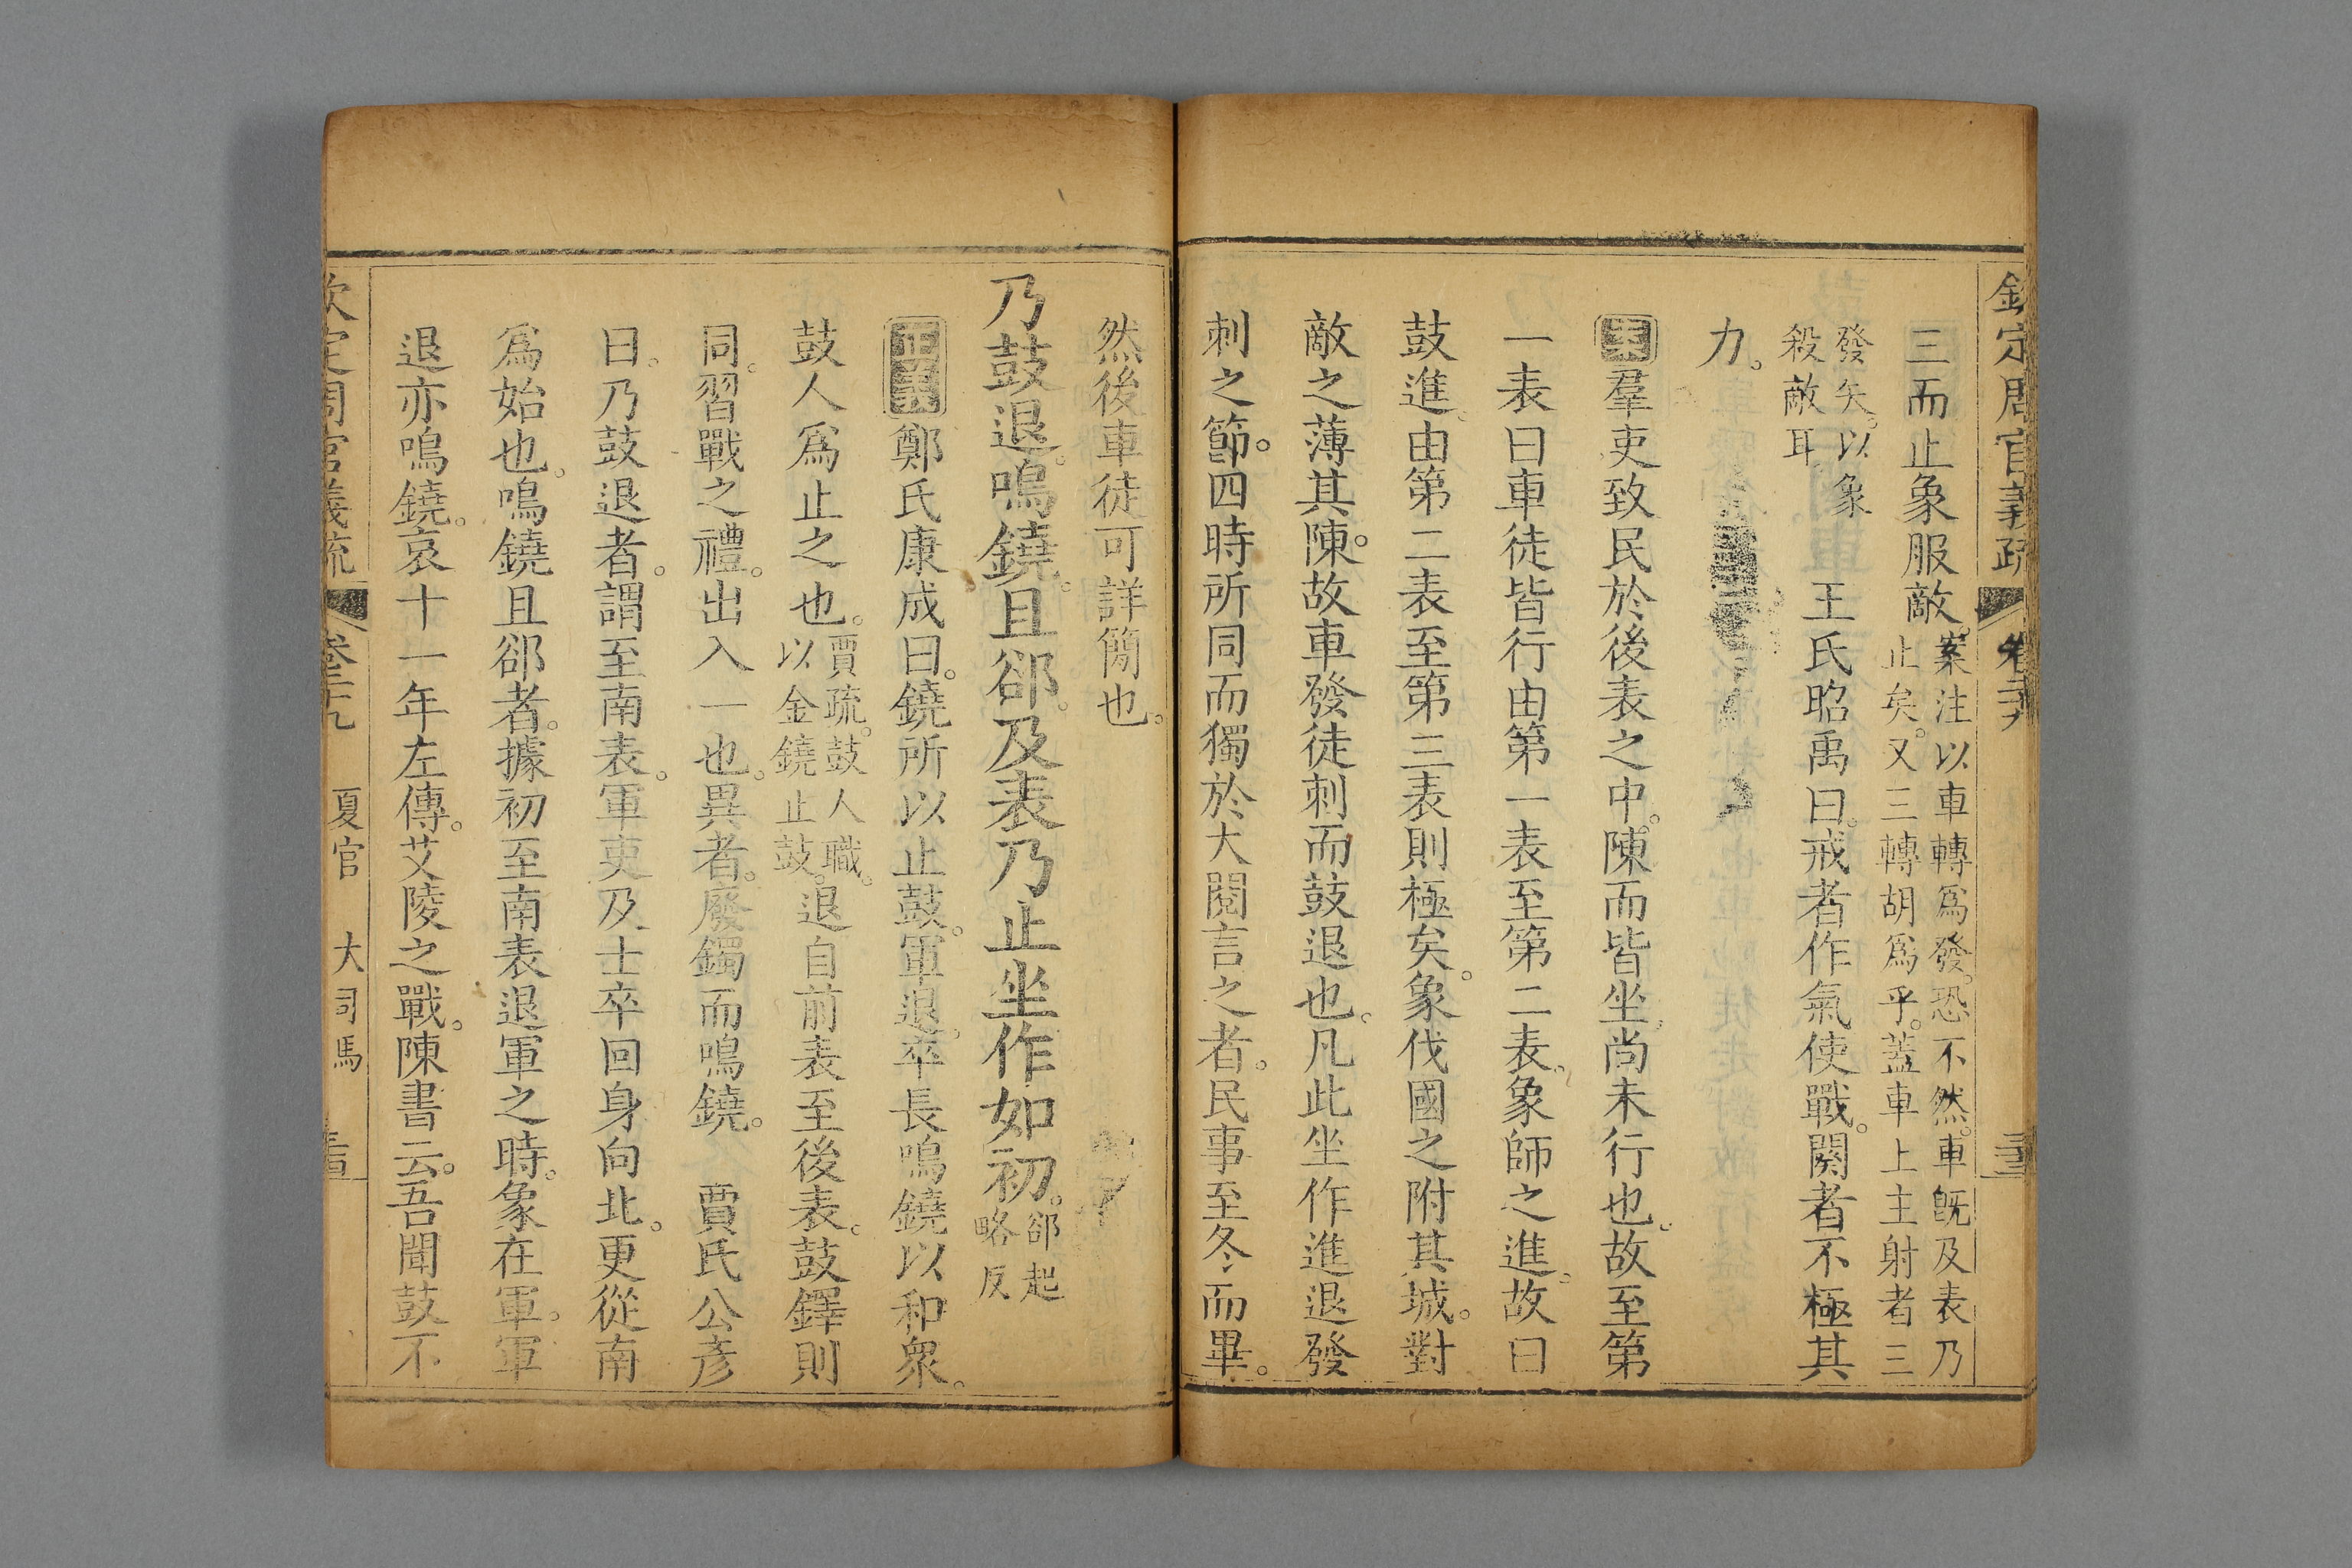 欽定周官義疏 卷二十九
三而止象服敵。案注以車轉爲發。恐不然。車旣及表乃止矣。又三轉胡爲乎。蓋車上主射者三
發矢。以象殺敵耳 王氏昭禹曰。戒者作氣使戰。闋者不極其
力。
案羣吏致民於後表之中。陳而皆坐。尚未行也。故至第
一表曰車徒皆行由第一表至第二表。象師之進。故曰
鼓進。由第二表至第三表則極矣。象伐國之附其城。對
敵之薄其陳。故車發徒刺而鼓退也。凡此坐作進退發
刺之節。四時所同而獨於大閱言之者。民事至冬而畢。
然後車徒可詳簡也。
乃鼓退。鳴鐃。且郤。及表乃止坐作如初。郤起略反
正義鄭氏康成曰。鐃所以止鼓。軍退。卒長鳴鐃以和衆。
鼓人爲止之也。賈疏。鼓人職。以金鐃止鼓。退自前表至後表。鼓鐸則
同。習戰之禮。出入一也。異者。廢鐲而鳴鐃。 賈氏公彥
曰。乃鼓退者。謂至南表。軍吏及士卒回身向北。更從南
爲始也。鳴鐃且郤者。據初至南表退軍之時。象在軍。軍
退亦鳴鐃。哀十一年左傳。艾陵之戰。陳書云。吾聞鼓不
欽定周官義疏 卷二十九 夏官 大司馬